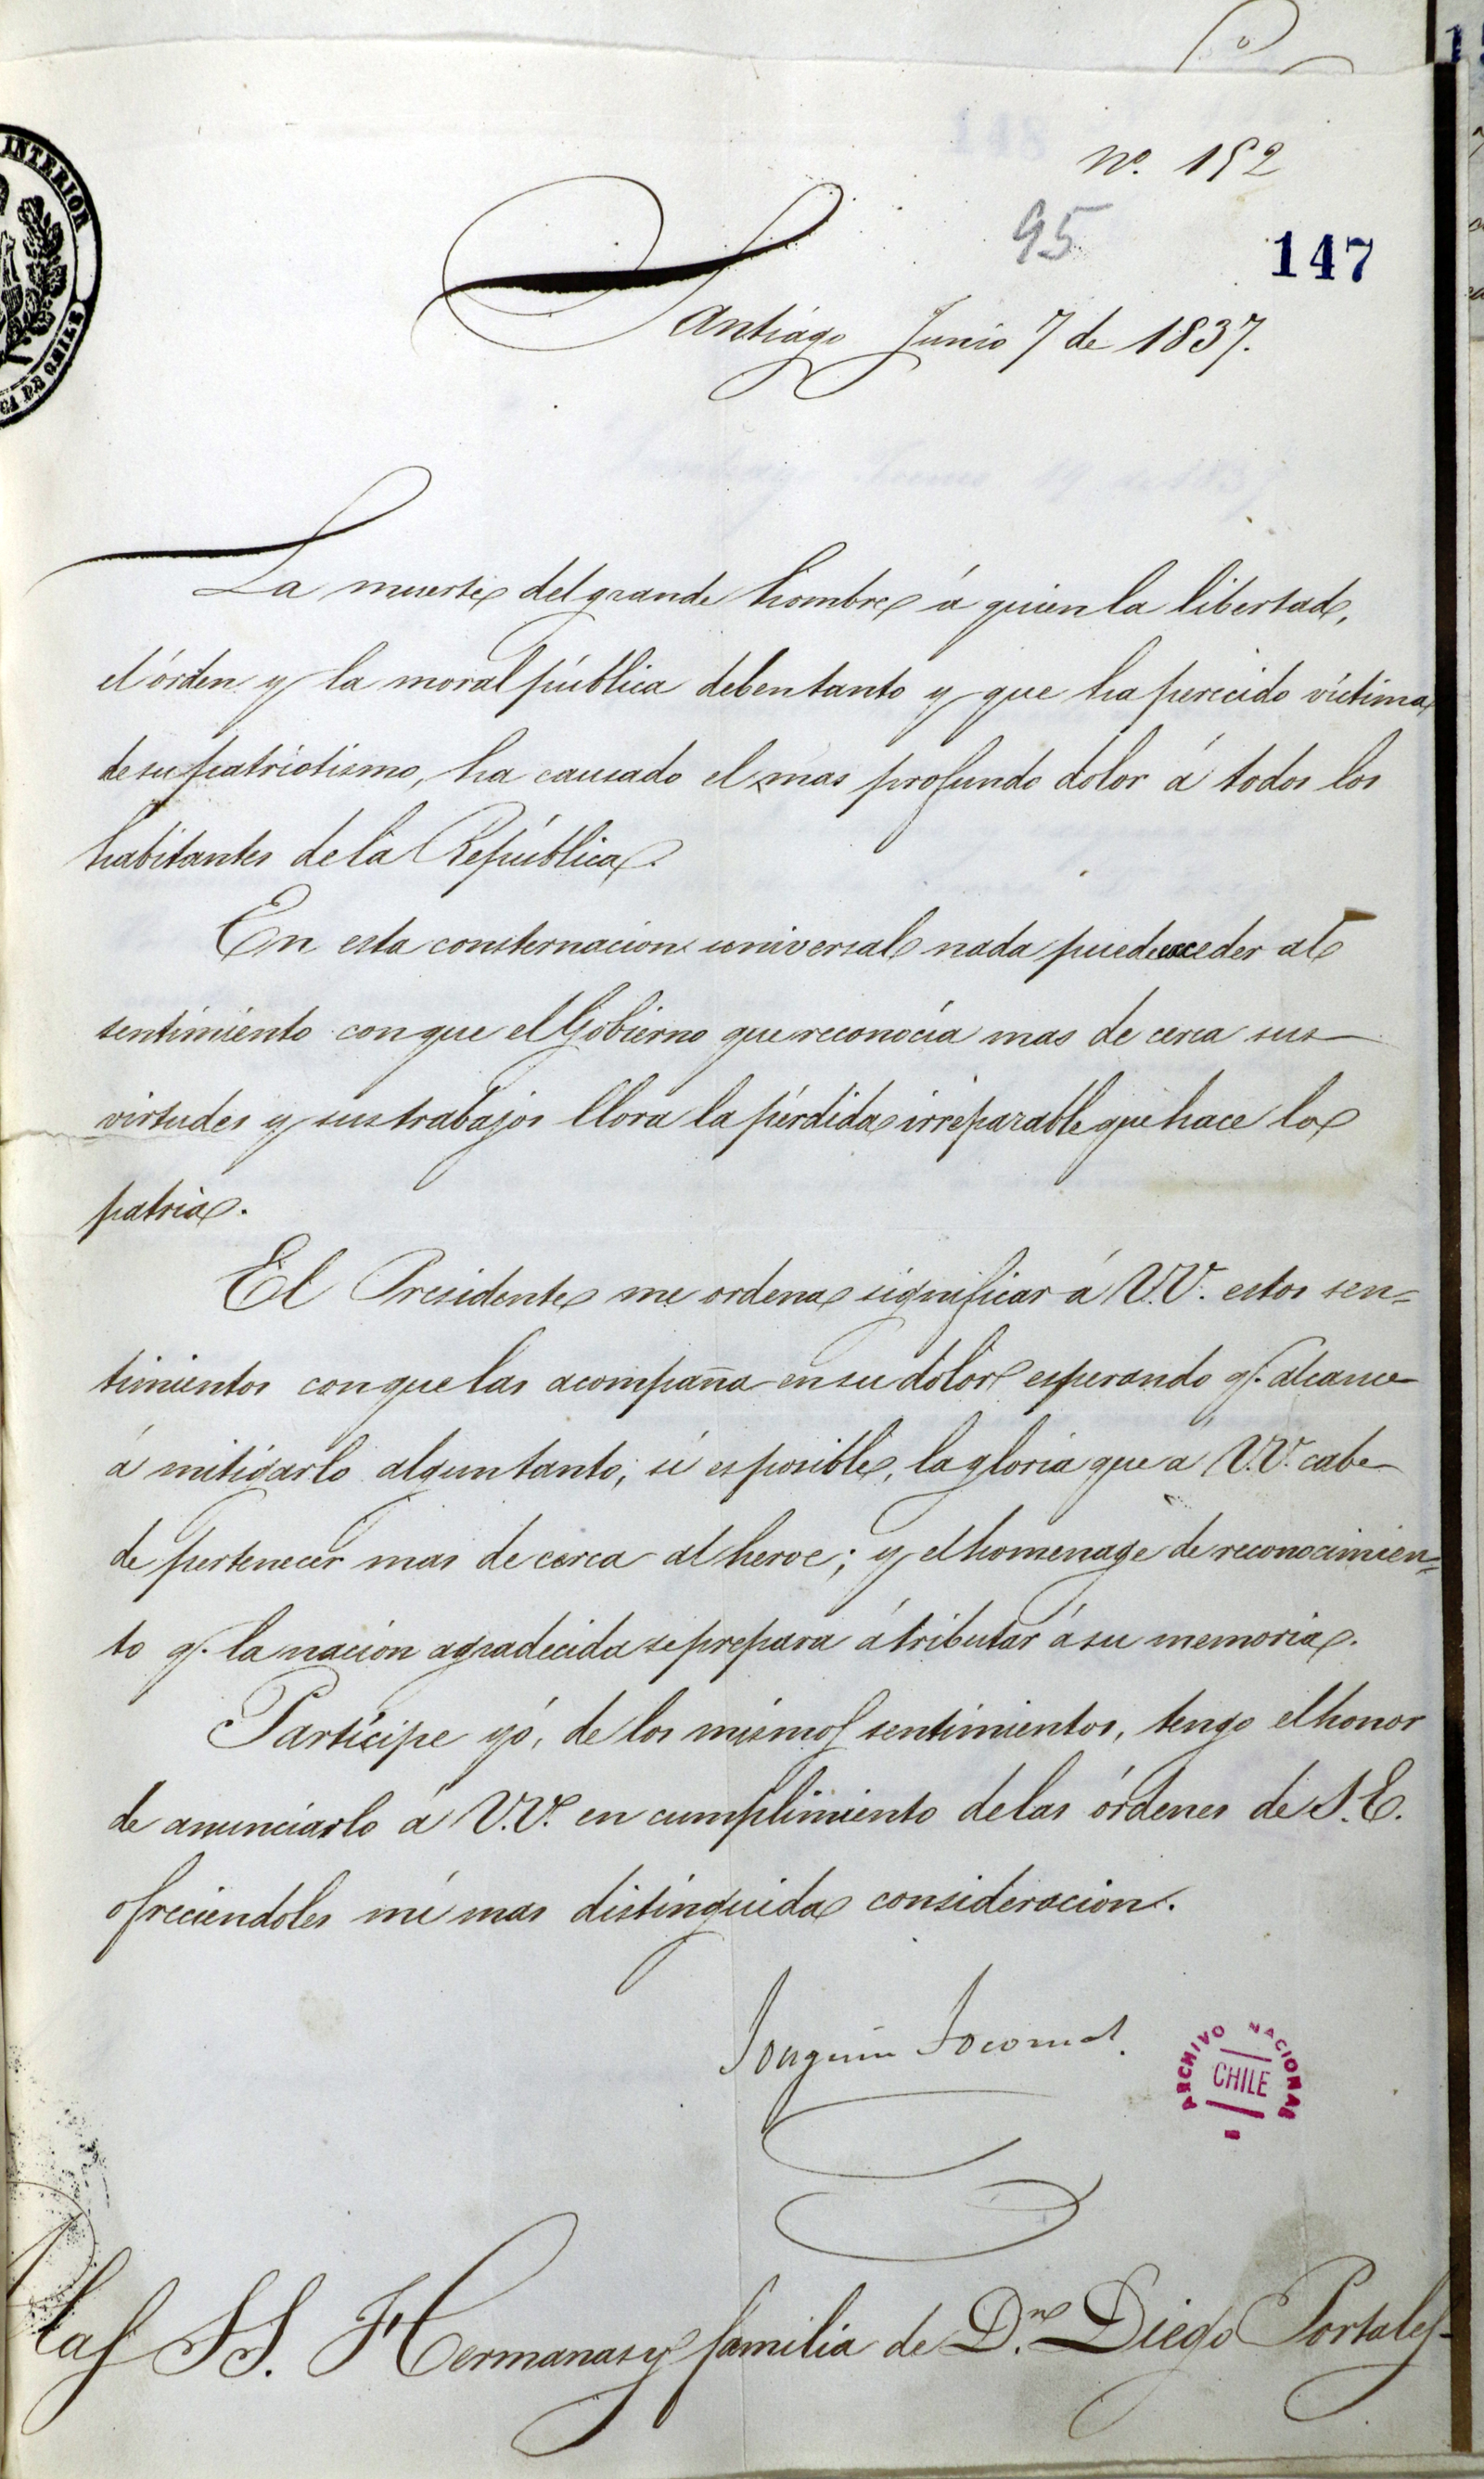 INTERIOR
No. 152
95
147
Santiago Junio 7 de 1837.
La muerte del grande hombre á quien la libertad,
el órden y la moral pública deben tanto y que ha perecido víctima
de su patriotismo, ha causado el mas profundo dolor á todos los
habitantes de la República.
En esta consternacion universal nada puede exceder al
sentimiento con que el Gobierno que reconocía mas de cerca sus
virtudes y sus trabajos llora la pérdida irreparable que hace la
patria.
El Presidente me ordena significar á V.V. estos sen=
timientos con que las acompaña en su dolor esperando q.e alcance
á mitigarlo algun tanto, si es posible, la gloria que á V.V. cabe
de pertenecer mas de cerca al heroe; y el homenage de reconocimien=
to q.e la nacion agradecida se prepara á tributar á su memoria.
Partícipe yó, de los mismos sentimientos, tengo el honor
de anunciarlo á V.V. en cumplimiento de las órdenes de S.E.
ofreciendoles mi mas distinguida consideracion.
Joaquin Tocornal.
ARCHIVO NACIONAL
CHILE
las SS. Hermanas y familia de D.n Diego Portales